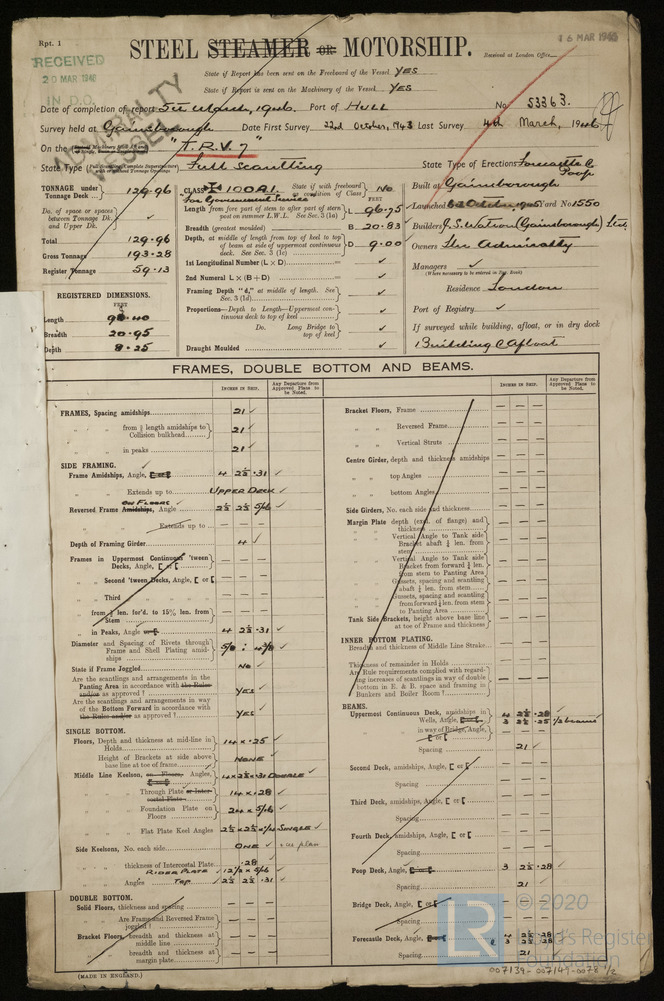 Rpt. 1
16 MAR 1946
RECEIVED
20 MAR 1946
IN D.O.
STEEL STEAMER or MOTORSHIP.
Received at London Office
State if Report has been sent on the Freeboard of the Vessel YES
State if Report is sent on the Machinery of the Vessel YES
Date of completion of report 5th March, 1946. Port of HULL No. 53363.
Survey held at Gainsborough Date First Survey 22nd October, 1943 Last Survey 4th March, 1946
On the "T.R.V. 7"
ADMIRALTY
VESSEL
State Type Full Scantling State Type of Erections Forecastle & Poop
TONNAGE under Tonnage Deck 129.96
Do. of space or spaces between Tonnage Dk. and Upper Dk. ✓
Total 129.96
Gross Tonnage 193.28
Register Tonnage 59.13
REGISTERED DIMENSIONS.
FEET
Length
Breadth 20.95
Depth 8.25
CLASS ✠ 100A1. State if with freeboard as condition of Class No
For Government Service
Length from fore part of stem to after part of stern post on summer L.W.L. See Sec. 3 (1a) L 96.75
Breadth (greatest moulded) B 20.83
Depth, at middle of length from top of keel to top of beam at side of uppermost continuous deck. See Sec. 3 (1c) D 9.00
1st Longitudinal Number (L × D) ✓
2nd Numeral L × (B + D) ✓
Framing Depth "d," at middle of length. See Sec. 3 (1d) ✓
Proportions—Depth to Length—Uppermost continuous deck to top of keel ✓
Do. Long Bridge to top of keel ✓
Draught Moulded ✓
Built at Gainsborough
Launched 6th October, 1945 Yard No 1550
Builders J.S. Watson (Gainsborough) Ltd.
Owners The Admiralty
Managers ✓
(Where necessary to be entered in Reg. Book)
Residence London
Port of Registry ✓
If surveyed while building, afloat, or in dry dock
Building & Afloat
FRAMES, DOUBLE BOTTOM AND BEAMS.
INCHES IN SHIP.
Any Departure from Approved Plans to be Noted.
INCHES IN SHIP.
Any Departure from Approved Plans to be Noted.
FRAMES, Spacing amidships 21 ✓
" " from ⅗ length amidships to Collision bulkhead 21 ✓
" " in peaks 21 ✓
SIDE FRAMING.
Frame Amidships, Angle 4 2½ .31 ✓
" " Extends up to UPPER DECK ✓
ON FLOORS
Reversed Frame Amidships, Angle 2½ 2½ 5/16 ✓
" " Extends up to
Depth of Framing Girder 4 ✓
Frames in Uppermost Continuous 'tween Decks, Angle, [ or [
" Second 'tween Decks, Angle, [ or [
" Third " " "
" from ⅗ len. for'd. to 15% len. from Stem
" in Peaks, Angle or [ 4 2½ .31 ✓
Diameter and Spacing of Rivets through Frame and Shell Plating amidships
State if Frame Joggled No ✓
Are the scantlings and arrangements in the Panting Area in accordance with the Rules and/or as approved? YES ✓
Are the scantlings and arrangements in way of the Bottom Forward in accordance with the Rules and/or as approved? YES ✓
SINGLE BOTTOM.
Floors, Depth and thickness at mid-line in Holds 14 × .25 ✓
Height of Brackets at side above base line at toe of frame NONE ✓
Middle Line Keelson, on Floors, Angles, 4 × 2½ × .31 DOUBLE ✓
" " Through Plate or Intercostal Plate 14 × .28 ✓
" " Foundation Plate on Floors 24 × 5/16 ✓
" " Flat Plate Keel Angles SINGLE ✓
Side Keelsons, No. each side ONE ✓ see plan
" " thickness of Intercostal Plate .28
RIDER PLATE
" " Angles TOP 2½ 2½ .31 ✓
DOUBLE BOTTOM.
Solid Floors, thickness and spacing
" " Are Frame and Reversed Frame joggled?
Bracket Floors, breadth and thickness at middle line
" " breadth and thickness at margin plate
Bracket Floors, Frame
" " Reversed Frame
" " Vertical Struts
Centre Girder, depth and thickness amidships
" " top Angles
" " bottom Angles
Side Girders, No. each side and thickness
Margin Plate depth (excl. of flange) and thickness
" " Vertical Angle to Tank side Bracket abaft ¼ len. from stem
" " Vertical Angle to Tank side Bracket from forward ¼ len. from stem to Panting Area
" " Gussets, spacing and scantling abaft ¼ len. from stem
" " Gussets, spacing and scantling from forward ¼ len. from stem to Panting Area
Tank Side Brackets, height above base line at toe of Frame and thickness
INNER BOTTOM PLATING.
Breadth and thickness of Middle Line Strake
Thickness of remainder in Holds
Are Rule requirements complied with regarding increases of scantlings in way of double bottom in E. & B. space and framing in Bunkers and Boiler Room?
BEAMS.
Uppermost Continuous Deck, amidships in Wells, Angle, 4 2½ .28 ✓
3 2½ .25 ½ beams ✓
" " in way of Bridge, Angle, [ or [
" " Spacing 21 ✓
Second Deck, amidships, Angle, [ or [
" " Spacing
Third Deck, amidships, Angle, [ or [
" " Spacing
Fourth Deck, amidships, Angle, [ or [
" " Spacing
Poop Deck, Angle, 3 2½ .28 ✓
" " Spacing 21 ✓
Bridge Deck, Angle, [ or [
" " Spacing
Forecastle Deck, Angle, 4 2½ .28
3 2½ .28
" " Spacing 21
(MADE IN ENGLAND.)
LR
© 2020
Lloyd's Register
Foundation
007139-007149-0078 1/2